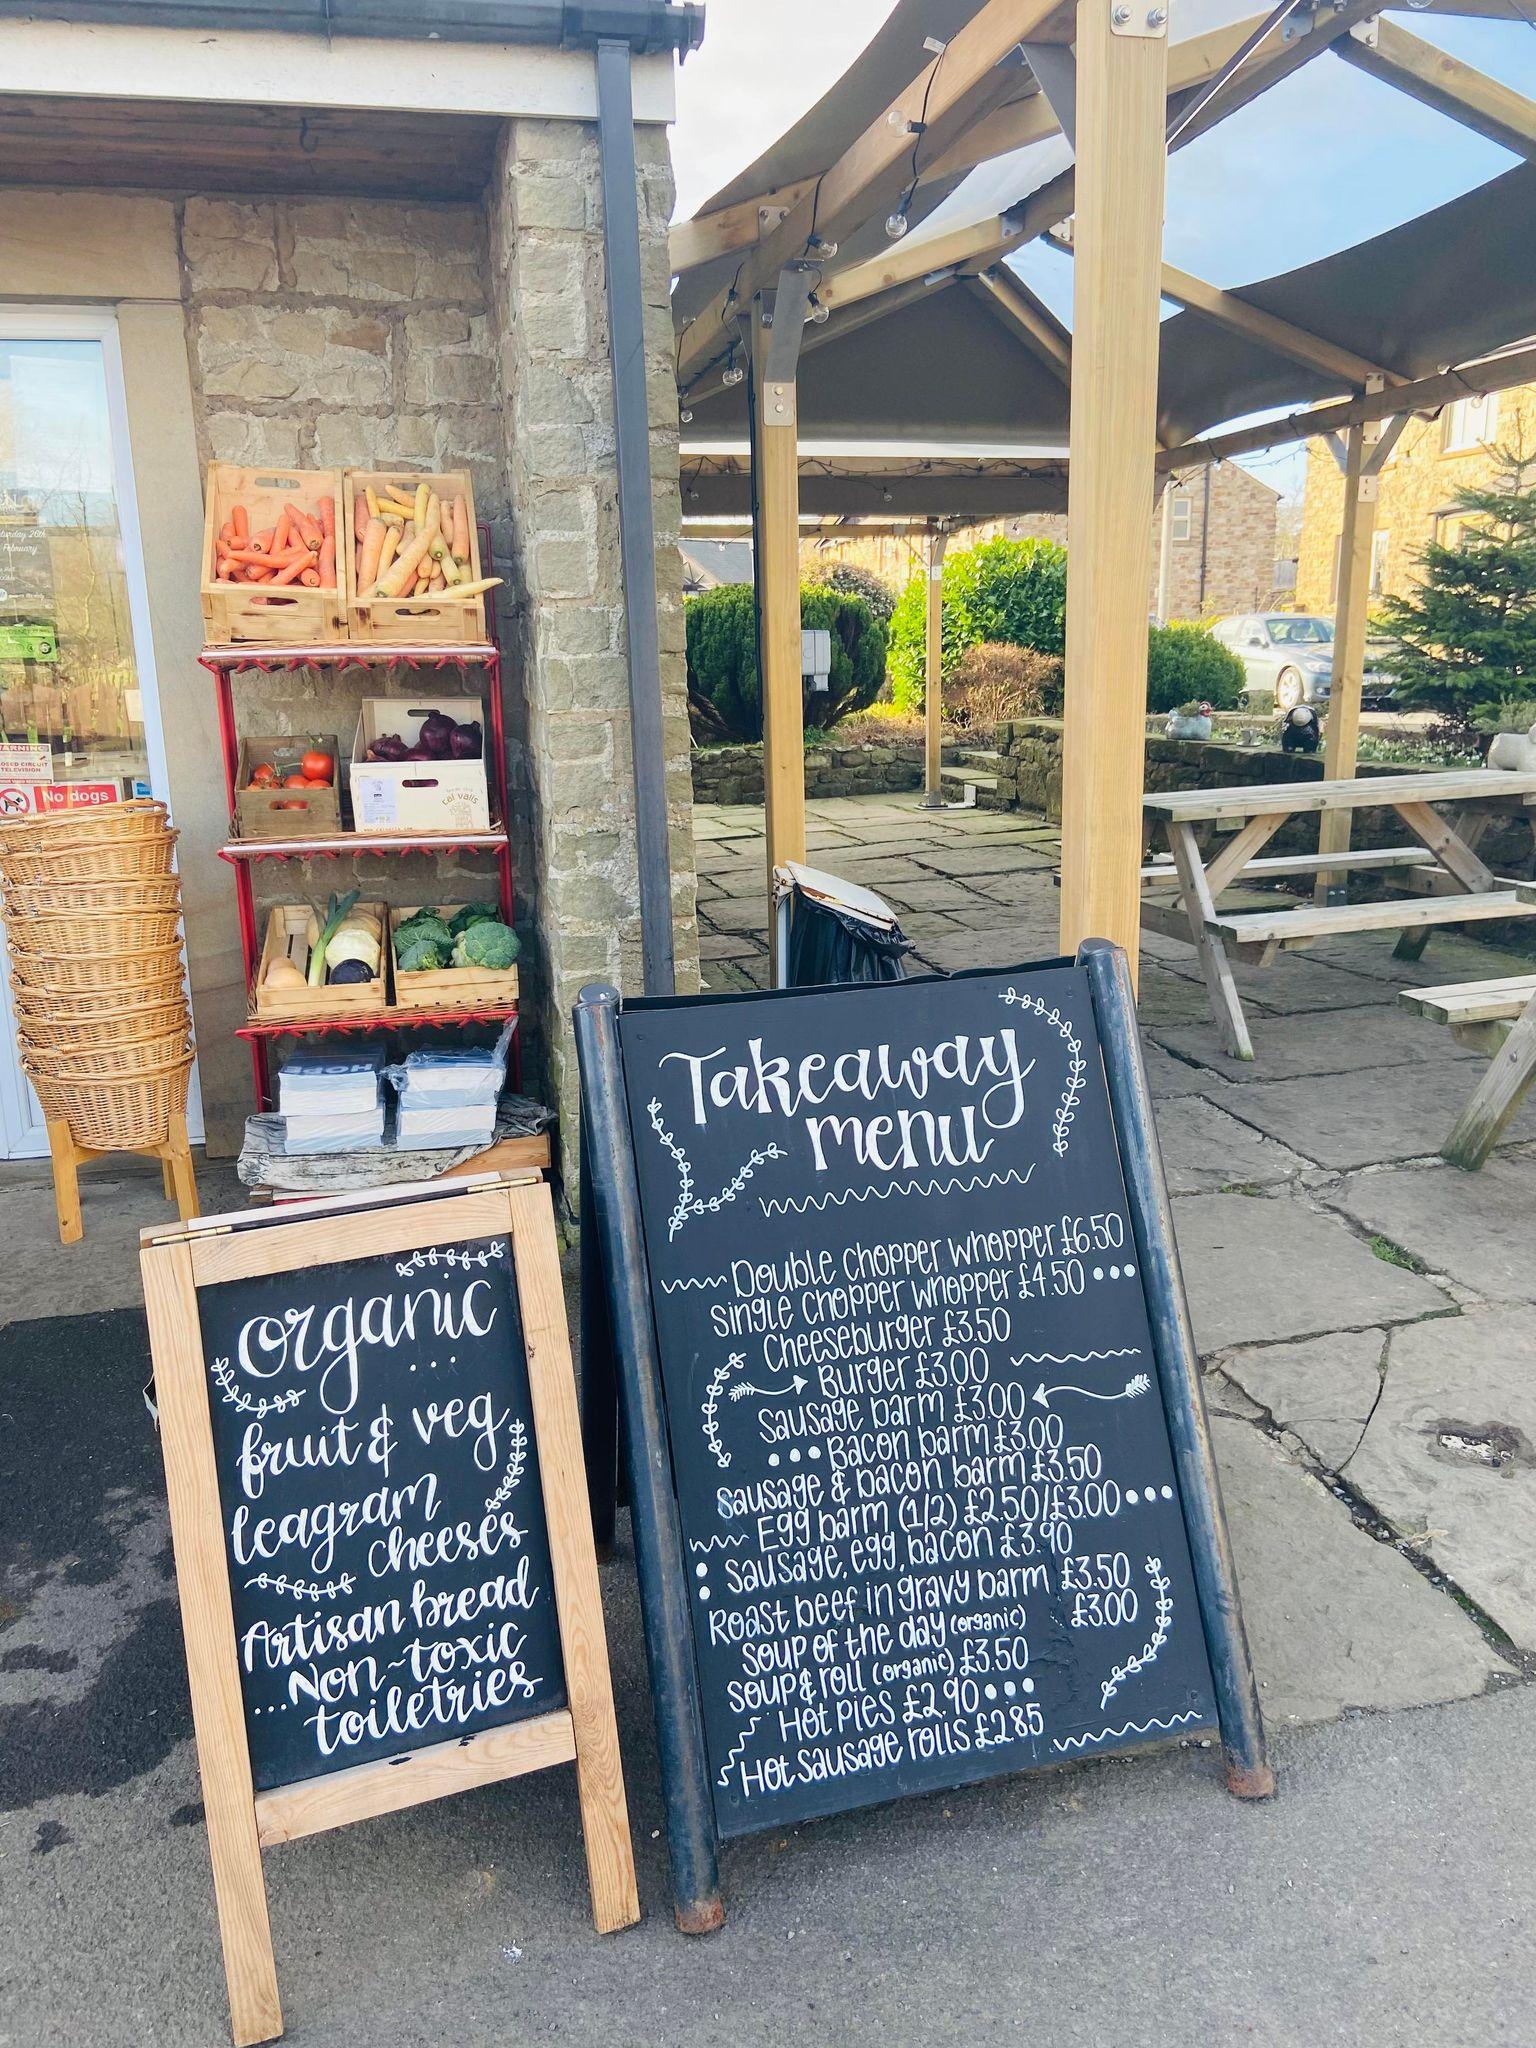 Saturday 26th
February
WARNING
CLOSED CIRCUIT
TELEVISION
No dogs
cal valls
organic
...
fruit & veg
leagram
cheeses
Artisan bread
...Non-toxic
toiletries
Takeaway
menu
Double chopper whopper £6.50
single chopper whopper £4.50
Cheeseburger £3.50
Burger £3.00
Sausage barm £3.00
Bacon barm £3.00
sausage & bacon barm £3.50
Egg barm (1/2) £2.50/£3.00
sausage, egg, bacon £3.90
Roast beef in gravy barm £3.50
Soup of the day (organic) £3.00
soup & roll (organic) £3.50
Hot pies £2.90
Hot sausage rolls £2.85